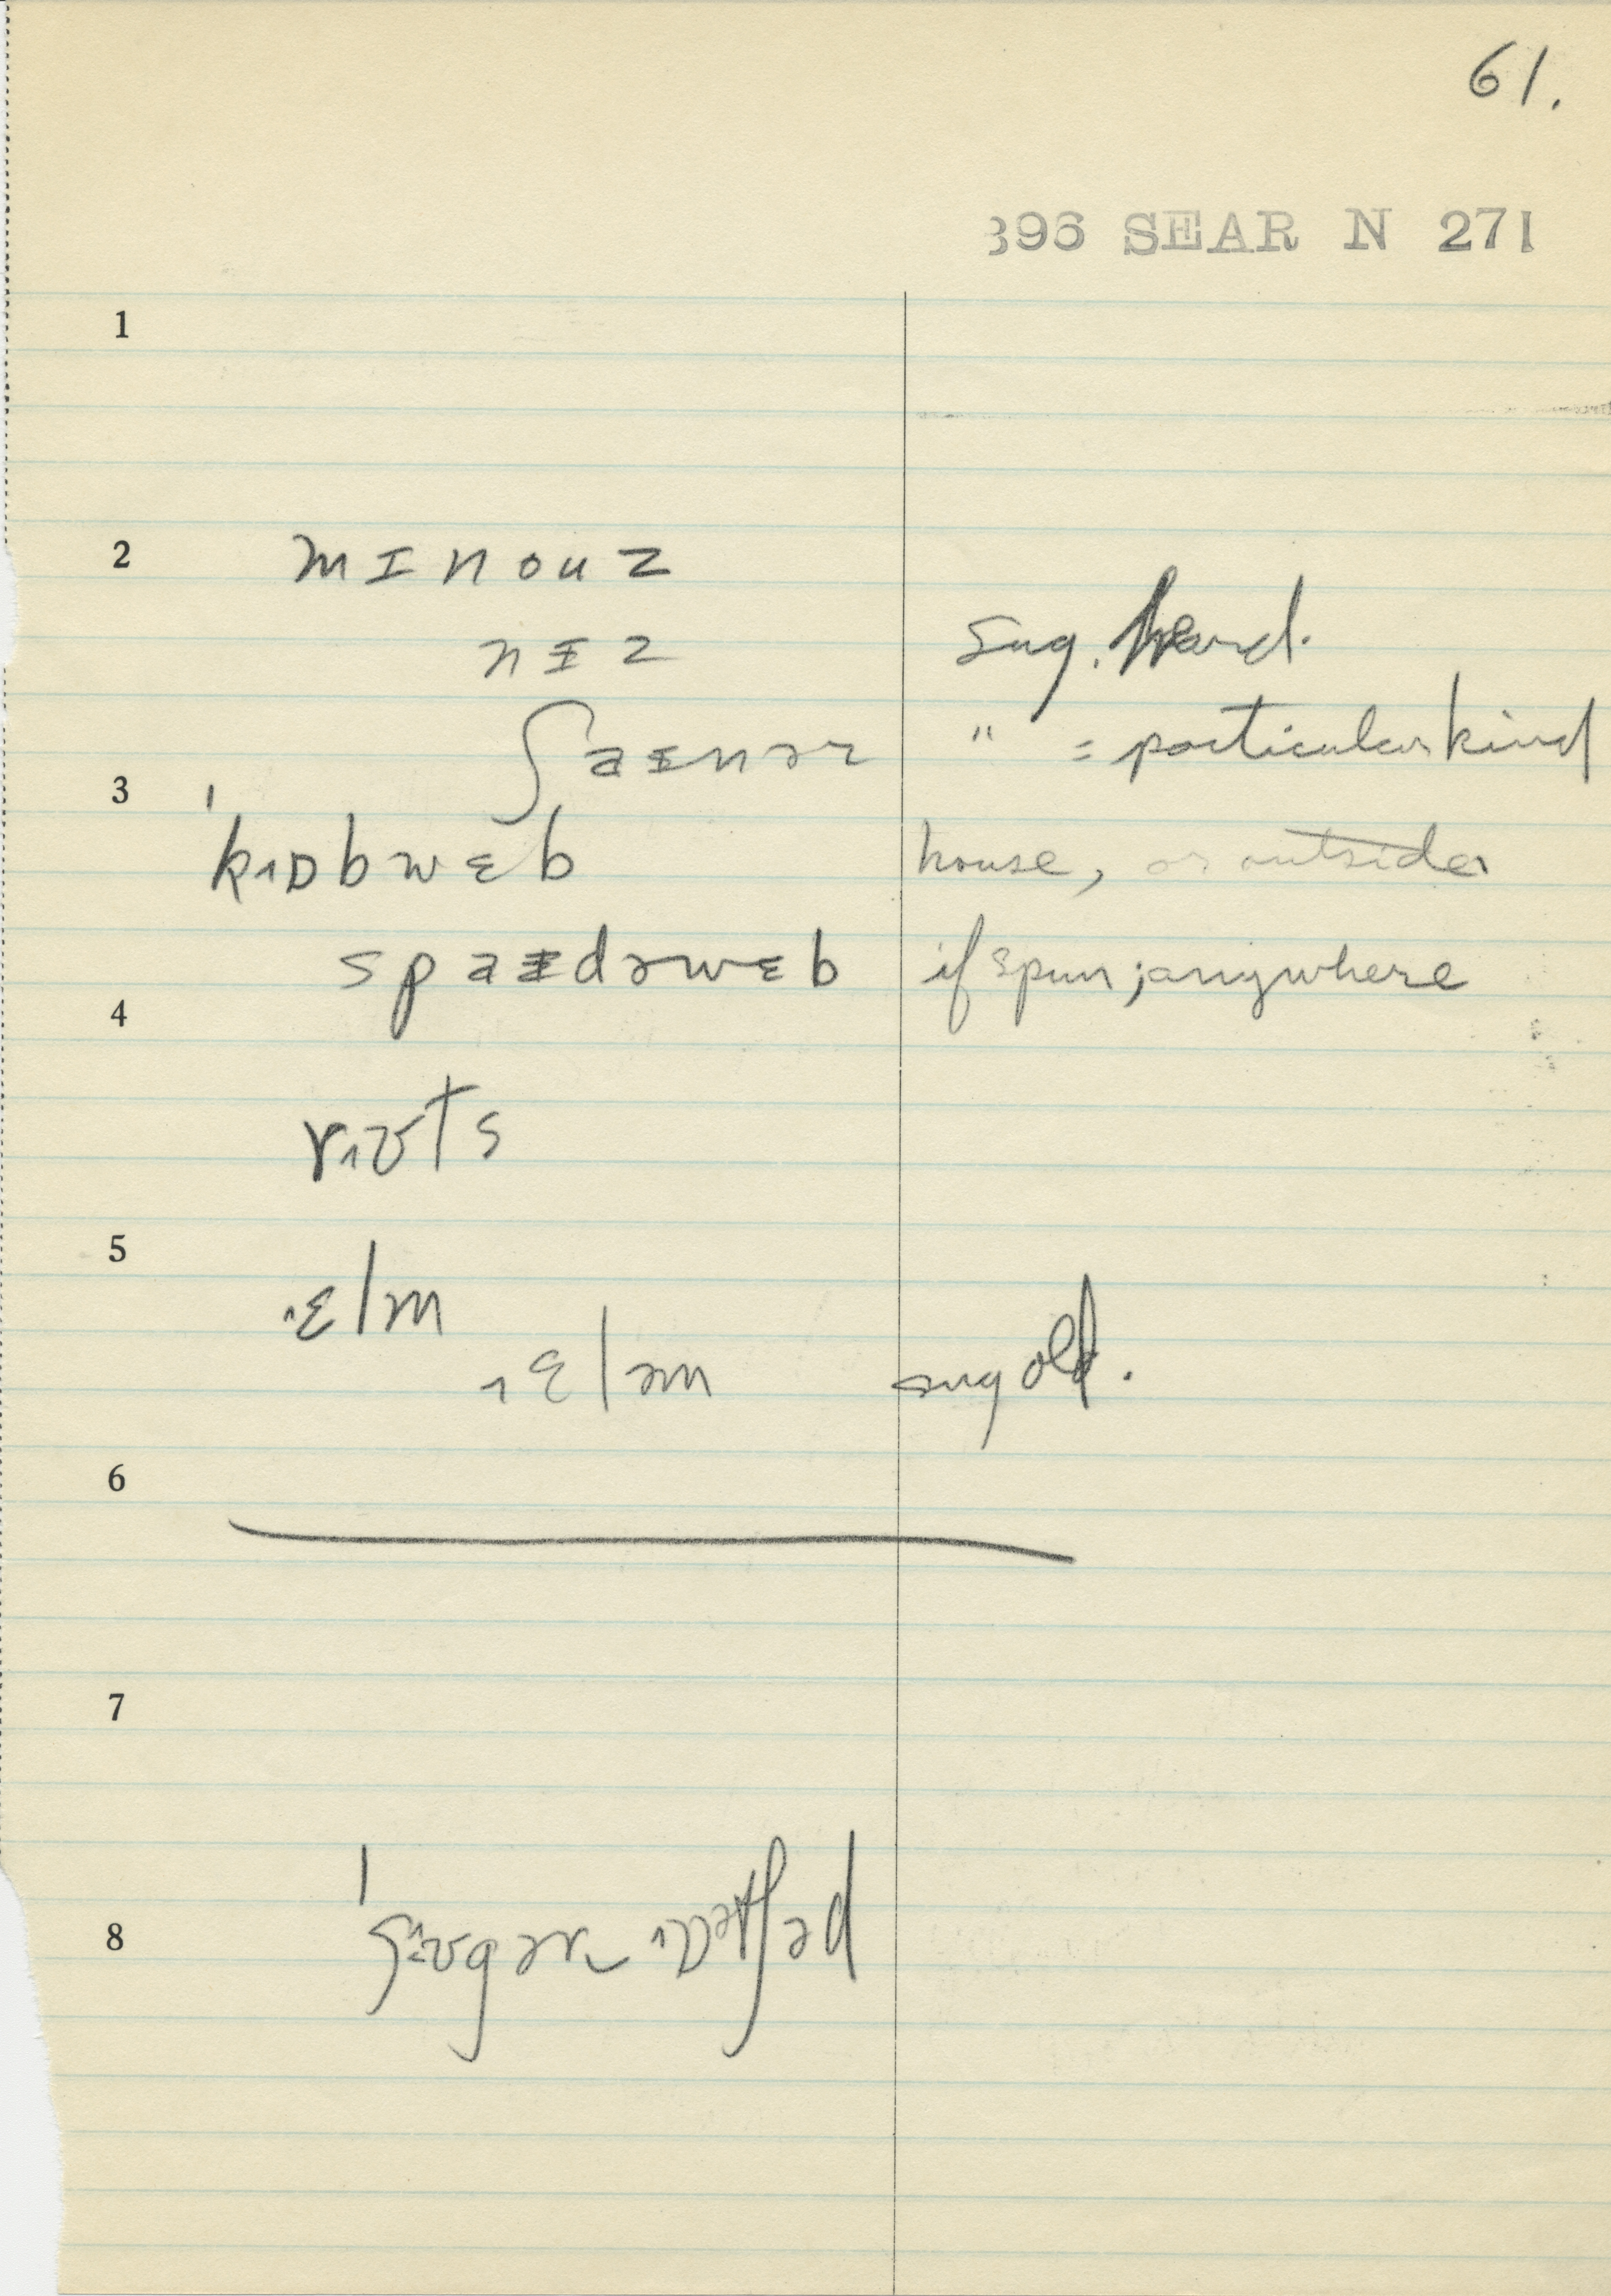 61.
396 SEAR N 271
1
2 mɪnouz
nɪz sug. heard.
ʃaɪnər " = particular kind
3
ˈkɒbwɛb house, or outside
spaɪdərwɛb if spun; anywhere
4
rʊts
5
ɛlm
ɛləm sug old.
6
7
8 ˈʃʊgər